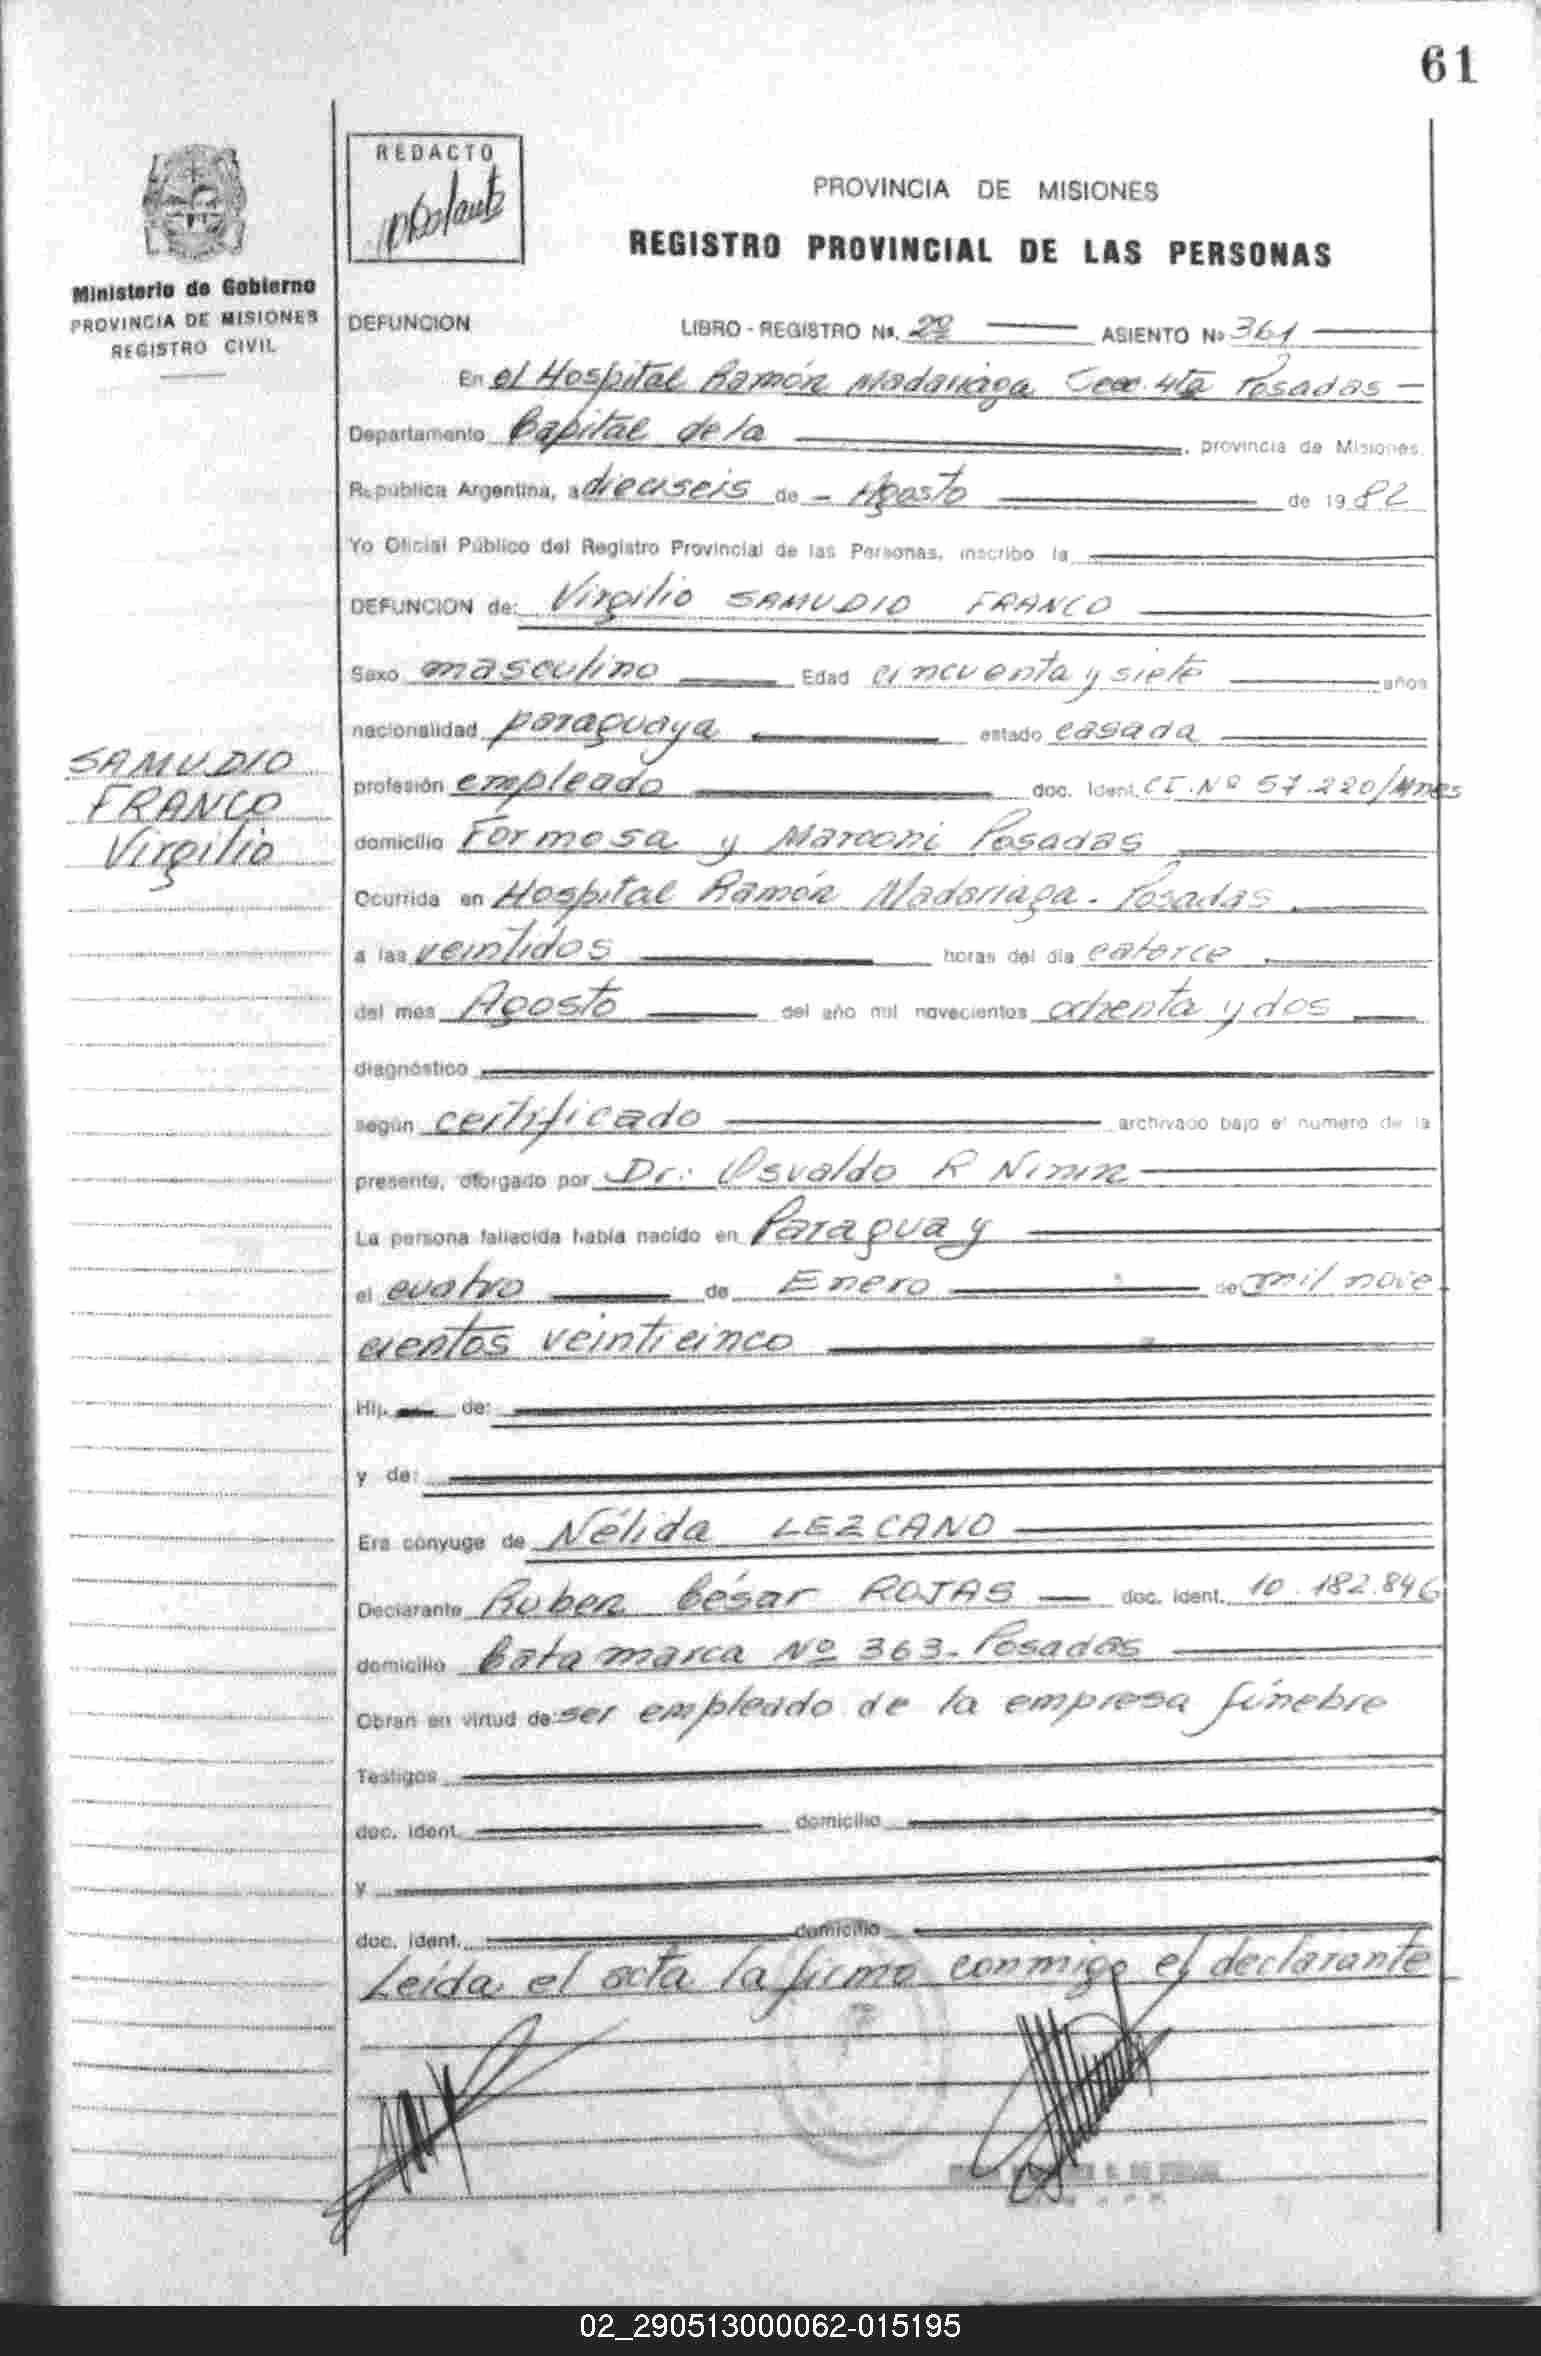 61
REDACTO
PROVINCIA DE MISIONES
REGISTRO PROVINCIAL DE LAS PERSONAS
Ministerio de Gobierno
PROVINCIA DE MISIONES
REGISTRO CIVIL
DEFUNCION LIBRO - REGISTRO Nº. 2º ASIENTO Nº 361
En el Hospital Ramón Madariaga Secc. 4ta Posadas
Departamento Capital de la , provincia de Misiones,
República Argentina, a dieciseis de Agosto de 1982
Yo Oficial Público del Registro Provincial de las Personas, inscribo la
DEFUNCION de: Virgilio SAMUDIO FRANCO
Sexo masculino Edad cincuenta y siete años
nacionalidad paraguaya estado casada
SAMUDIO
FRANCO
Virgilio
profesión empleado doc. Ident. CI. Nº 57.220/Mnes
domicilio Formosa y Marconi Posadas
Ocurrida en Hospital Ramón Madariaga. Posadas
a las veintidos horas del día catorce
del mes Agosto del año mil novecientos ochenta y dos
diagnóstico
según certificado archivado bajo el número de la
presente, otorgado por Dr. Osvaldo R
La persona fallecida había nacido en Paraguay
el cuatro de Enero de mil nove
cientos veinticinco
Hij. de:
y de:
Era cónyuge de Nélida LEZCANO
Declarante Ruben César ROJAS doc. ident. 10.182.846
domicilio Catamarca Nº 363. Posadas
Obran en virtud de: ser empleado de la empresa fúnebre
Testigos
doc. ident. domicilio
y
doc. ident. domicilio
Leída el acta la firma conmigo el declarante
02_290513000062-015195